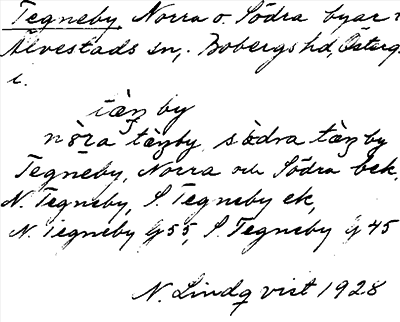 Tegneby, Norra o. Södra byar i
Alvestads sn, Bobergs hd, Österg.
l.
tæŋby
nòra tæŋby, södra tæŋby
Tegneby, Norra och Södra bek.
N. Tegneby, S. Tegneby ek,
N. Tegneby G 55, S. Tegneby G 45
N. Lindqvist 1928